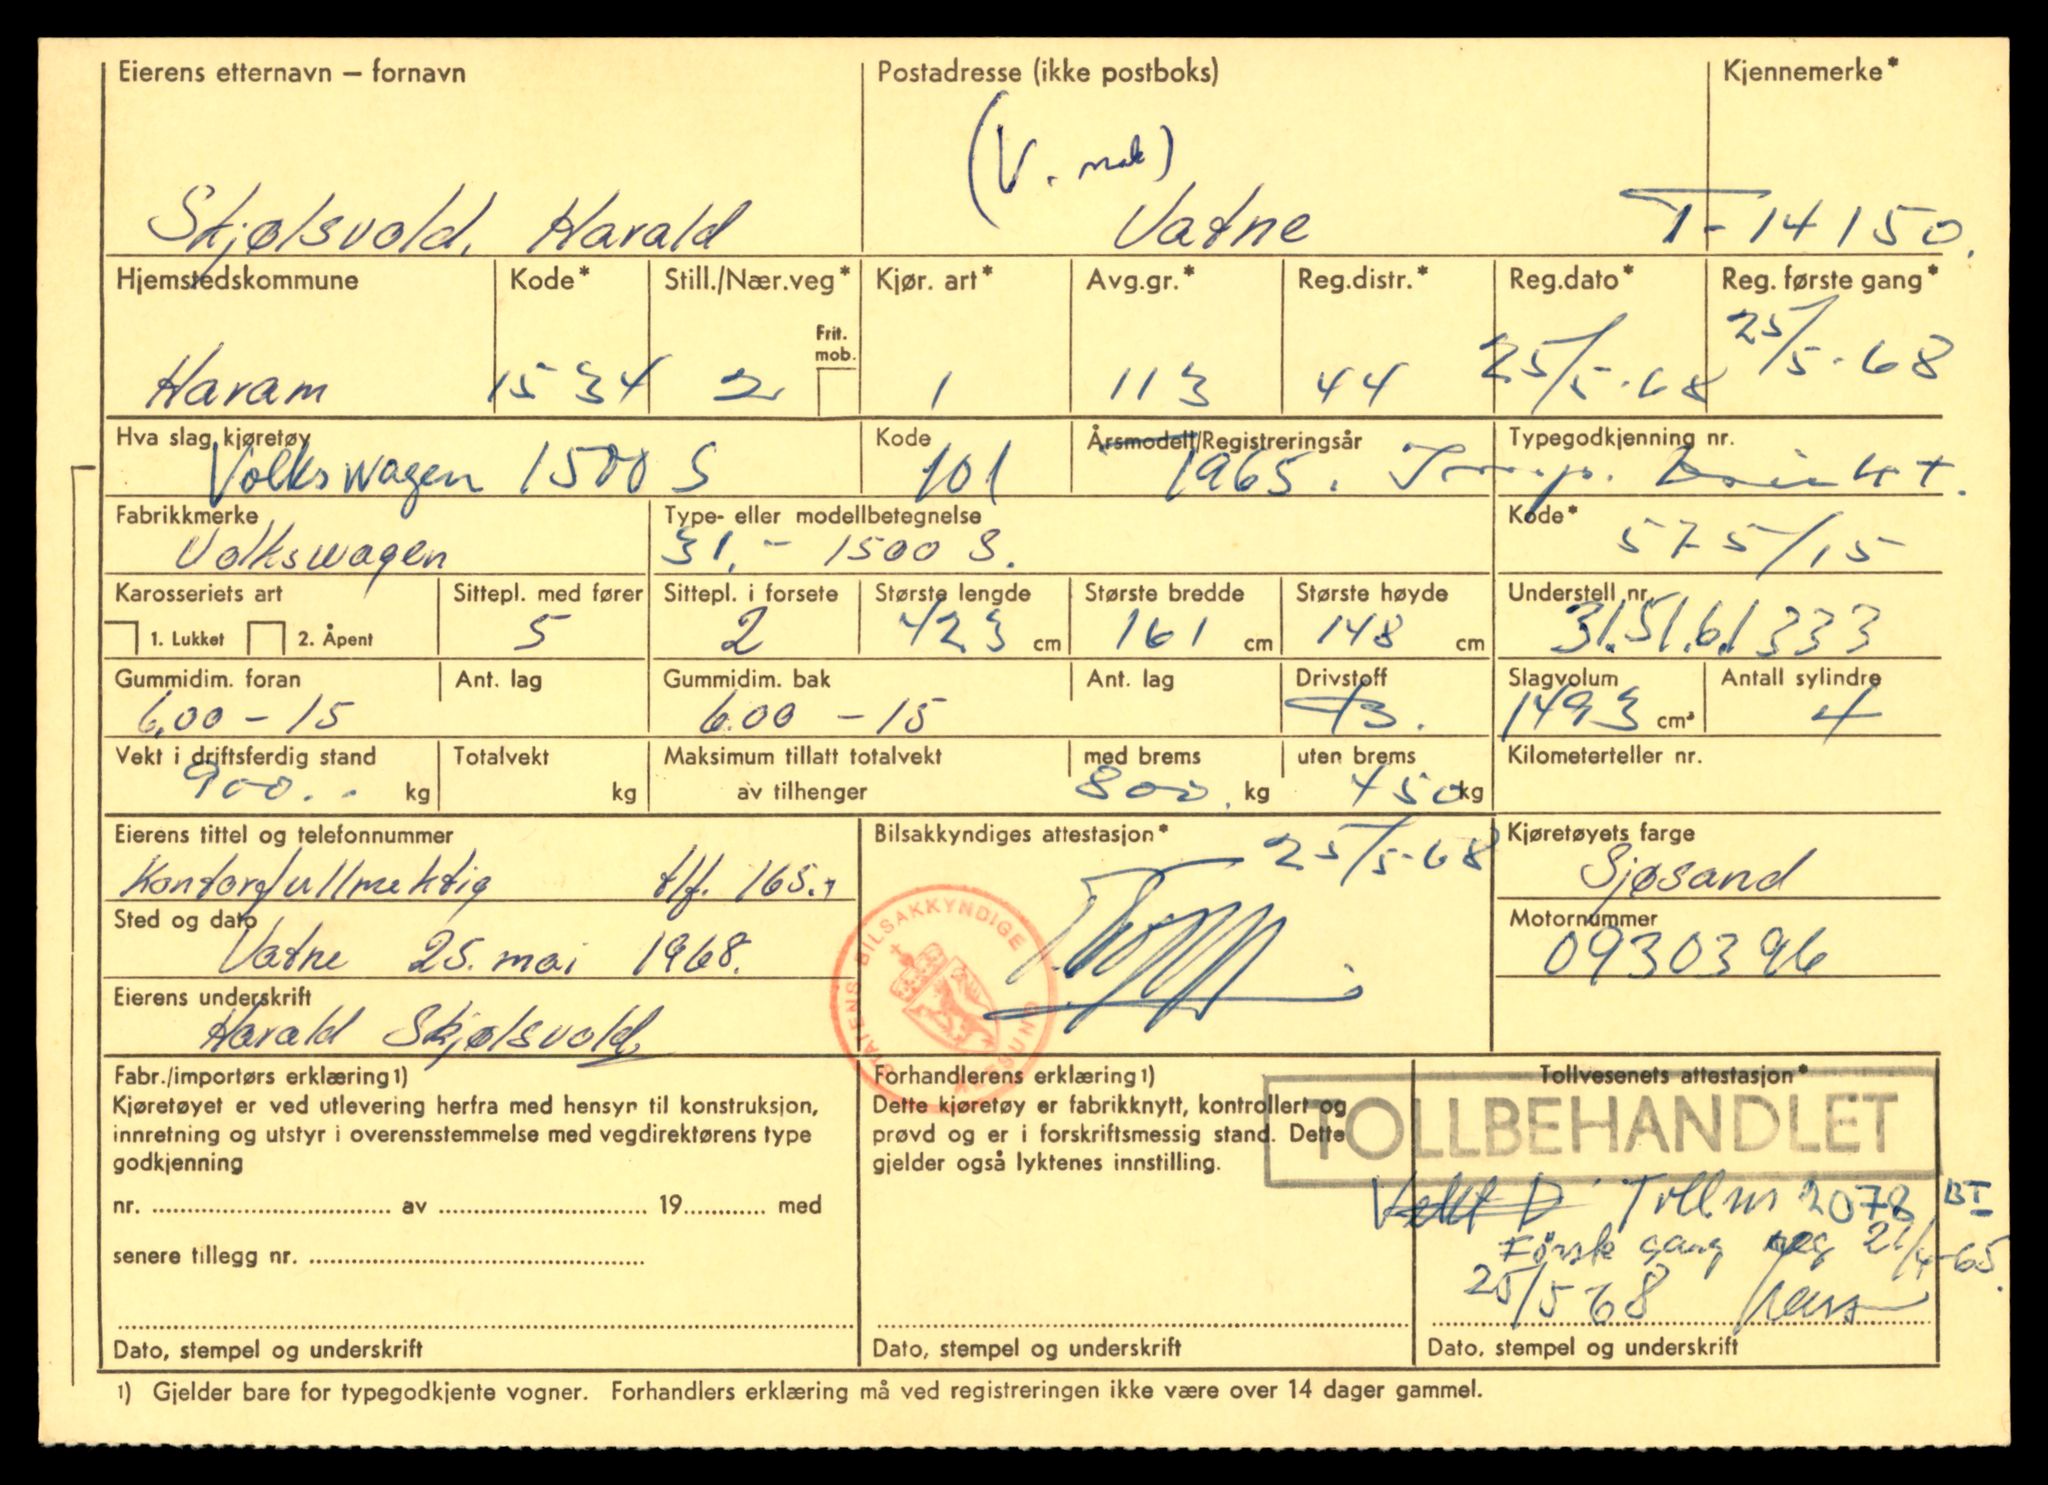 Eierens etternavn – fornavn Postadresse (ikke postboks) Kjennemerke*
(V. mak)
Skjølsvold, Harald Vatne T-14150.
Hjemstedskommune Kode* Still./Nær.veg* Kjør. art* Avg.gr.* Reg.distr.* Reg.dato* Reg. første gang*
Frit.
mob.
Haram 1534 2 1 113 44 25/5-68 25/5-68
Hva slag kjøretøy Kode Årsmodell/Registreringsår Typegodkjenning nr.
Volkswagen 1500 S 101 1965.
Fabrikkmerke Type- eller modellbetegnelse Kode*
Volkswagen 31. - 1500 S. 575/15
Karosseriets art Sittepl. med fører Sittepl. i forsete Største lengde Største bredde Største høyde Understell nr.
1. Lukket 2. Åpent 5 2 423 cm 161 cm 148 cm 31.51.61333
Gummidim. foran Ant. lag Gummidim. bak Ant. lag Drivstoff Slagvolum Antall sylindre
6.00 - 15 6.00 - 15 1493 cm³ 4
Vekt i driftsferdig stand Totalvekt Maksimum tillatt totalvekt med brems uten brems Kilometerteller nr.
900.. kg kg av tilhenger 800. kg 450 kg
Eierens tittel og telefonnummer Bilsakkyndiges attestasjon* 25/5-68 Kjøretøyets farge
Kontorfullmektig tlf. 165. Sjøsand
Sted og dato Motornummer
Vatne 25. mai 1968. 0930396
STATENS BILSAKKYNDIGE
Eierens underskrift
Harald Skjølsvold
Fabr./importørs erklæring 1) Forhandlerens erklæring 1) Tollvesenets attestasjon*
Kjøretøyet er ved utlevering herfra med hensyn til konstruksjon, Dette kjøretøy er fabrikknytt, kontrollert og
TOLLBEHANDLET
innretning og utstyr i overensstemmelse med vegdirektørens type prøvd og er i forskriftsmessig stand. Dette
godkjenning gjelder også lyktenes innstilling.
nr. av 19 med Toll nr 2078 BI
senere tillegg nr. Første gang reg 21/4-65.
25/5 68
Dato, stempel og underskrift Dato, stempel og underskrift Dato, stempel og underskrift
1) Gjelder bare for typegodkjente vogner. Forhandlers erklæring må ved registreringen ikke være over 14 dager gammel.